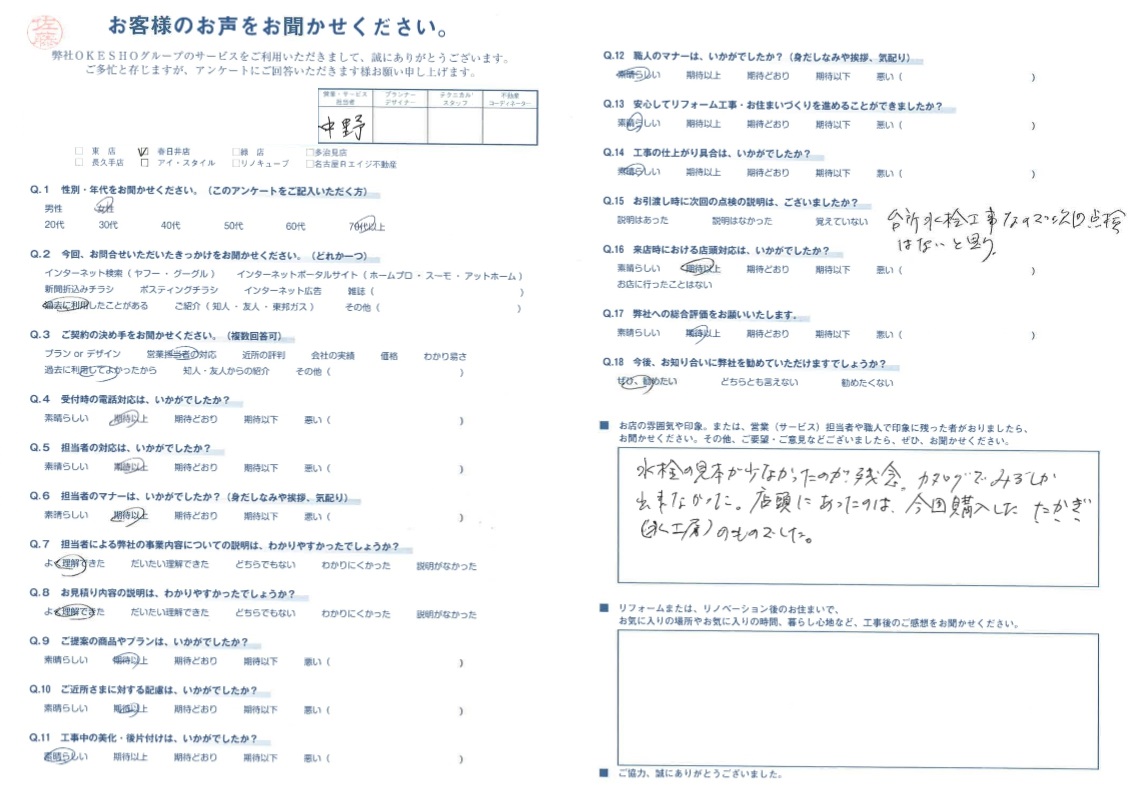 佐藤
お客様のお声をお聞かせください。
弊社OKESHOグループのサービスをご利用いただきまして、誠にありがとうございます。
ご多忙と存じますが、アンケートにご回答いただきます様お願い申し上げます。
営業・サービス担当者 プランナーデザイナー テクニカルスタッフ 不動産コーディネーター
中野
□東 店 ☑春日井店 □緑 店 □多治見店
□長久手店 □アイ・スタイル □リノキューブ □名古屋Rエイジ不動産
Q.1 性別・年代をお聞かせください。（このアンケートをご記入いただく方）
男性 女性
20代 30代 40代 50代 60代 70代以上
Q.2 今回、お問合せいただいたきっかけをお聞かせください。（どれか一つ）
インターネット検索（ ヤフー ・ グーグル ） インターネットポータルサイト（ ホームプロ ・ スーモ ・ アットホーム ）
新聞折込みチラシ ポスティングチラシ インターネット広告 雑誌（ ）
過去に利用したことがある ご紹介（ 知人 ・ 友人 ・ 東邦ガス ） その他（ ）
Q.3 ご契約の決め手をお聞かせください。（複数回答可）
プラン or デザイン 営業担当者の対応 近所の評判 会社の実績 価格 わかり易さ
過去に利用してよかったから 知人・友人からの紹介 その他（ ）
Q.4 受付時の電話対応は、いかがでしたか？
素晴らしい 期待以上 期待どおり 期待以下 悪い（ ）
Q.5 担当者の対応は、いかがでしたか？
素晴らしい 期待以上 期待どおり 期待以下 悪い（ ）
Q.6 担当者のマナーは、いかがでしたか？（身だしなみや挨拶、気配り）
素晴らしい 期待以上 期待どおり 期待以下 悪い（ ）
Q.7 担当者による弊社の事業内容についての説明は、わかりやすかったでしょうか？
よく理解できた だいたい理解できた どちらでもない わかりにくかった 説明がなかった
Q.8 お見積り内容の説明は、わかりやすかったでしょうか？
よく理解できた だいたい理解できた どちらでもない わかりにくかった 説明がなかった
Q.9 ご提案の商品やプランは、いかがでしたか？
素晴らしい 期待以上 期待どおり 期待以下 悪い（ ）
Q.10 ご近所さまに対する配慮は、いかがでしたか？
素晴らしい 期待以上 期待どおり 期待以下 悪い（ ）
Q.11 工事中の美化・後片付けは、いかがでしたか？
素晴らしい 期待以上 期待どおり 期待以下 悪い（ ）
Q.12 職人のマナーは、いかがでしたか？（身だしなみや挨拶、気配り）
素晴らしい 期待以上 期待どおり 期待以下 悪い（ ）
Q.13 安心してリフォーム工事・お住まいづくりを進めることができましたか？
素晴らしい 期待以上 期待どおり 期待以下 悪い（
Q.14 工事の仕上がり具合は、いかがでしたか？
素晴らしい 期待以上 期待どおり 期待以下 悪い（ ）
Q.15 お引渡し時に次回の点検の説明は、ございましたか？
説明はあった 説明はなかった 覚えていない
台所水栓工事なので次回点検
はないと思う
Q.16 来店時における店頭対応は、いかがでしたか？
素晴らしい 期待以上 期待どおり 期待以下 悪い（ ）
お店に行ったことはない
Q.17 弊社への総合評価をお願いいたします。
素晴らしい 期待以上 期待どおり 期待以下 悪い（ ）
Q.18 今後、お知り合いに弊社を勧めていただけますでしょうか？
ぜひ、勧めたい どちらとも言えない 勧めたくない
■ お店の雰囲気や印象。または、営業（サービス）担当者や職人で印象に残った者がおりましたら、
お聞かせください。その他、ご要望・ご意見などございましたら、ぜひ、お聞かせください。
水栓の見本が少なかったのが残念。カタログでみるしか
出来なかった。店頭にあったのは、今回購入した たかぎ
(水工房)のものでした。
■ リフォームまたは、リノベーション後のお住まいで、
お気に入りの場所やお気に入りの時間、暮らし心地など、工事後のご感想をお聞かせください。
■ ご協力、誠にありがとうございました。